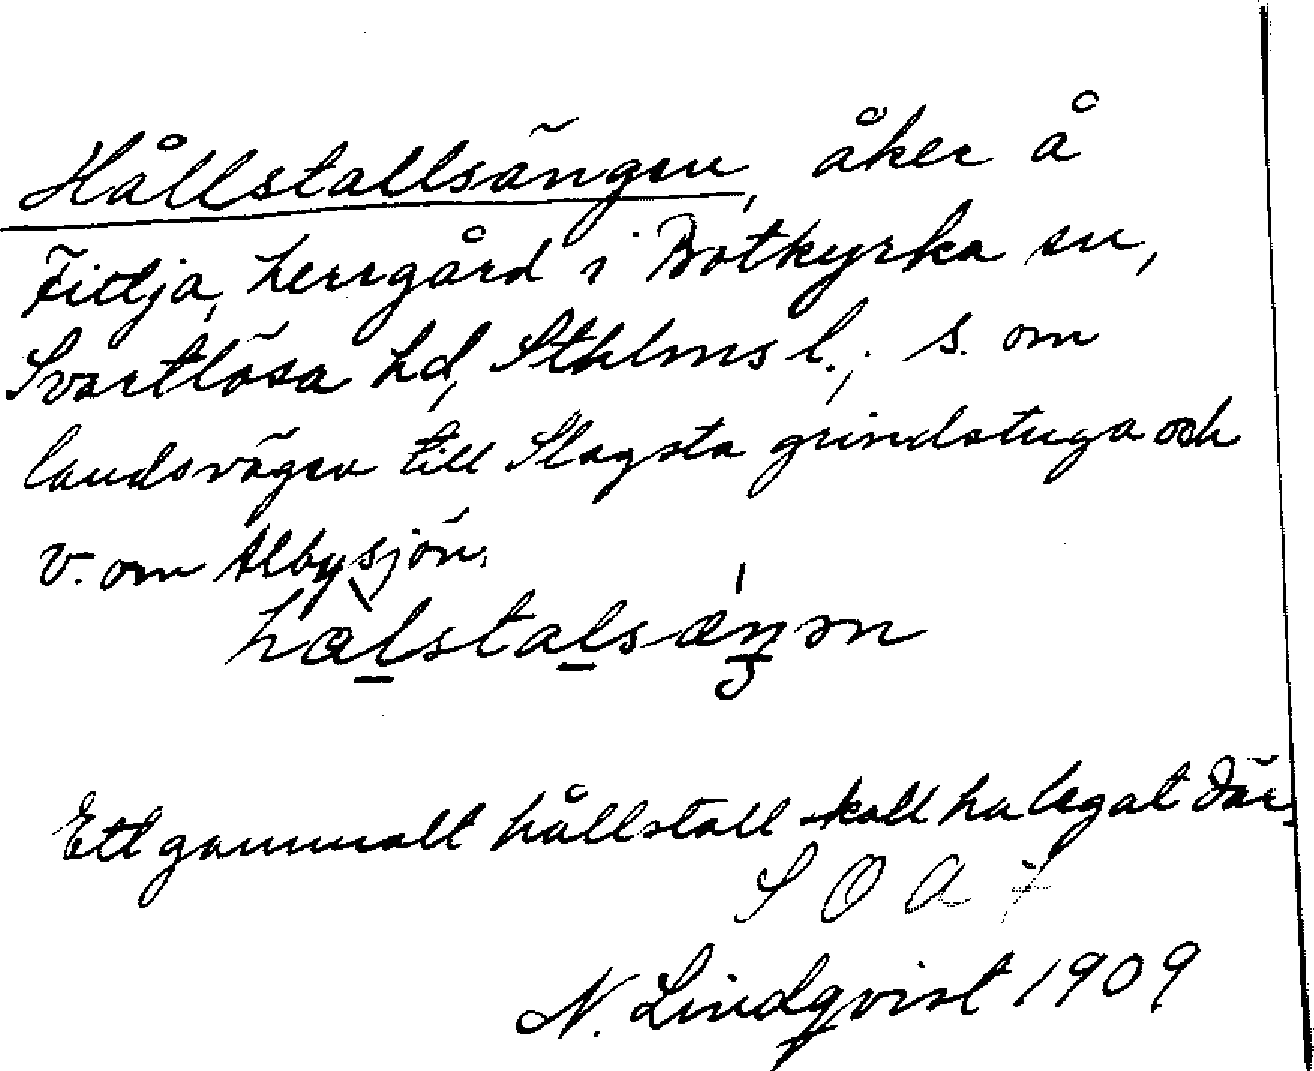 Hållstallsängen, åker å
Fittja, herrgård i Botkyrka sn,
Svartlösa hd, Sthlms l.; s. om
landsvägen till Slagsta grindstuga och
v. om Albysjön.
hålstalsäŋən
Ett gammalt hållstall skall ha legat där.
S O A
N. Lindqvist 1909